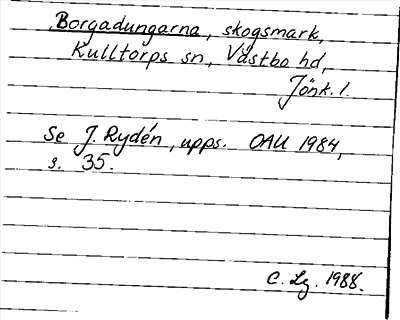 Borgadungarna, skogsmark,
Kulltorps sn, Västbo hd,
Jönk. l.
Se J. Rydén, upps. OAU 1984,
s. 35.
C. Lg. 1988.